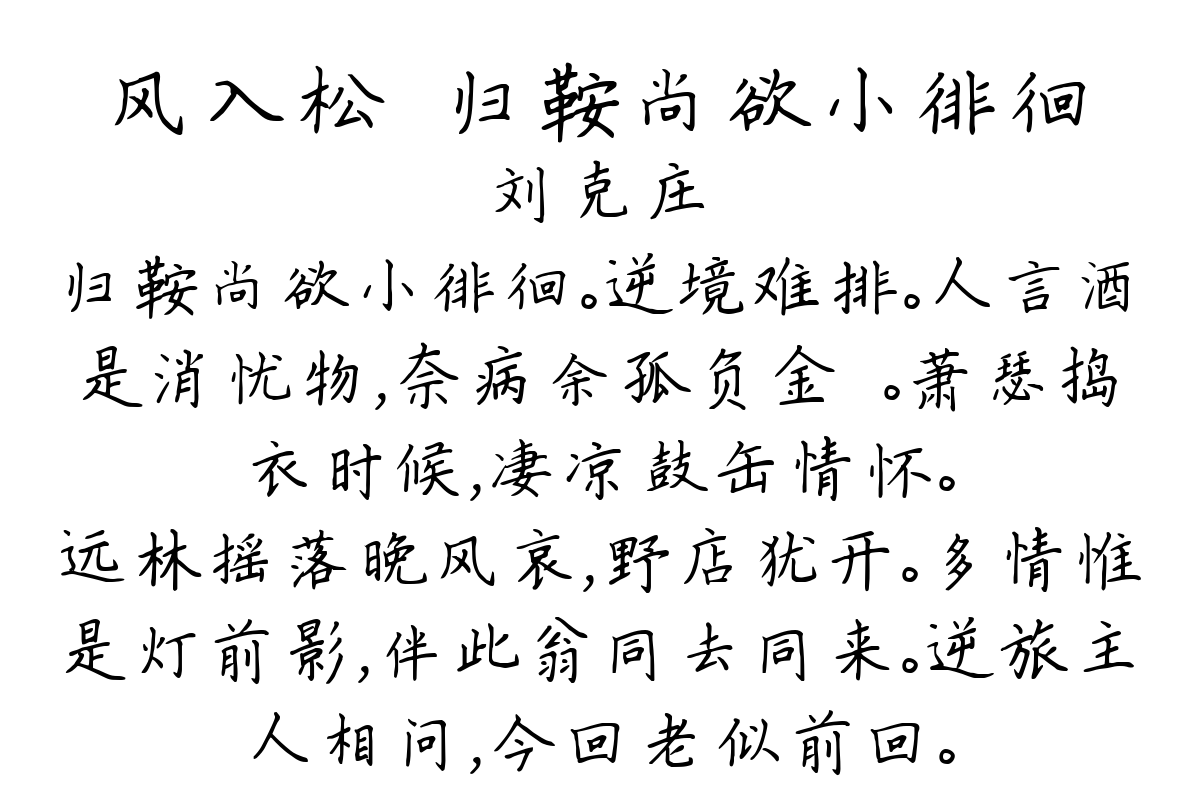 风入松 归鞍尚欲小徘徊
刘克庄
归鞍尚欲小徘徊。逆境难排。人言酒
是消忧物,奈病余孤负金 。萧瑟捣
衣时候,凄凉鼓缶情怀。
远林摇落晚风哀,野店犹开。多情惟
是灯前影,伴此翁同去同来。逆旅主
人相问,今回老似前回。